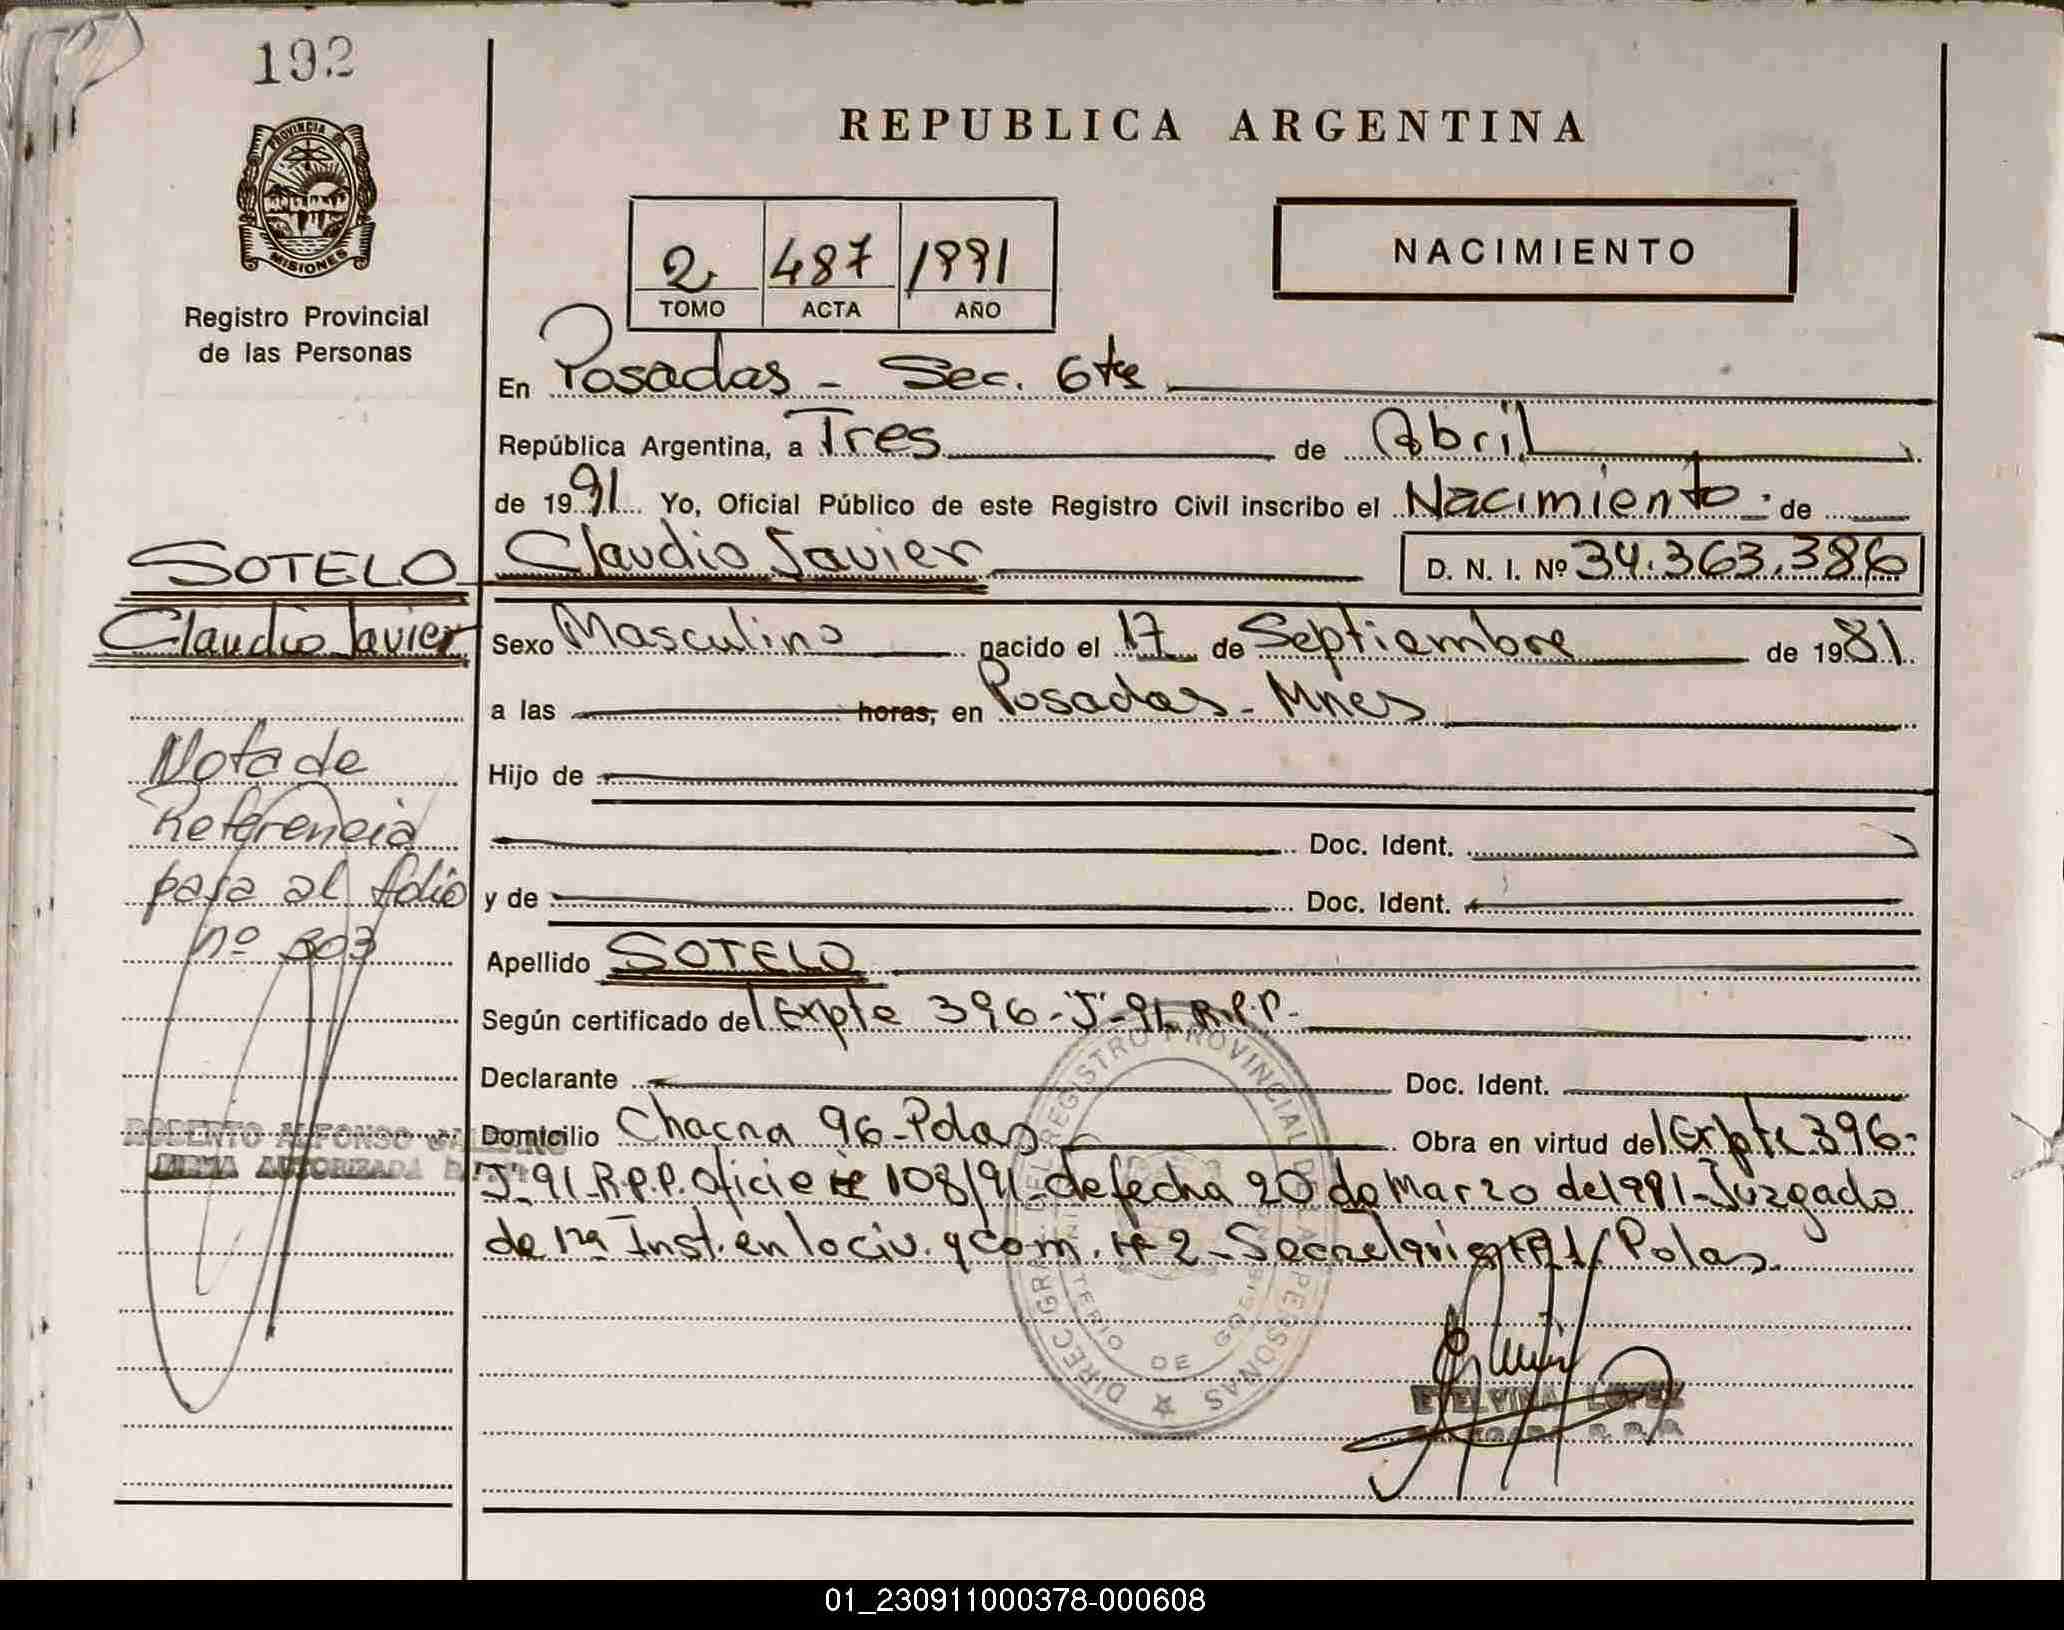 192
REPUBLICA ARGENTINA
PROVINCIA DE
MISIONES
Registro Provincial
de las Personas
NACIMIENTO
2 487 1991
TOMO ACTA AÑO
En Posadas - Sec. 6ta
República Argentina, a Tres de Abril
de 1991 Yo, Oficial Público de este Registro Civil inscribo el Nacimiento de
SOTELO Claudio Javier D. N. I. Nº 34.363.386
Claudio Javier
Sexo Masculino nacido el 17 de Septiembre de 1981
a las horas, en Posadas - Mnes
Hijo de
Doc. Ident.
y de Doc. Ident.
Nota de
Referencia
pasa al folio
nº 303
Apellido SOTELO
Según certificado del Expte 396-"J"-91 R.P.P.-
Declarante Doc. Ident.
Domicilio Chacra 96-Pdas Obra en virtud del Expte 396-
"J"-91-R.P.P. Oficio Nº 108/91-de fecha 20 de Marzo de 1991-Juzgado
de 1ra Inst. en lo civ. y com. Nº 2-Secretaria Nº 1/Pdas.
ROBERTO ALFONSO
FIRMA AUTORIZADA
DIREC. GRAL. DEL REGISTRO PROVINCIAL DE LAS PERSONAS
MINISTERIO DE GOBIERNO
ETELVINA LOPEZ
R.P.P.
01_230911000378-000608